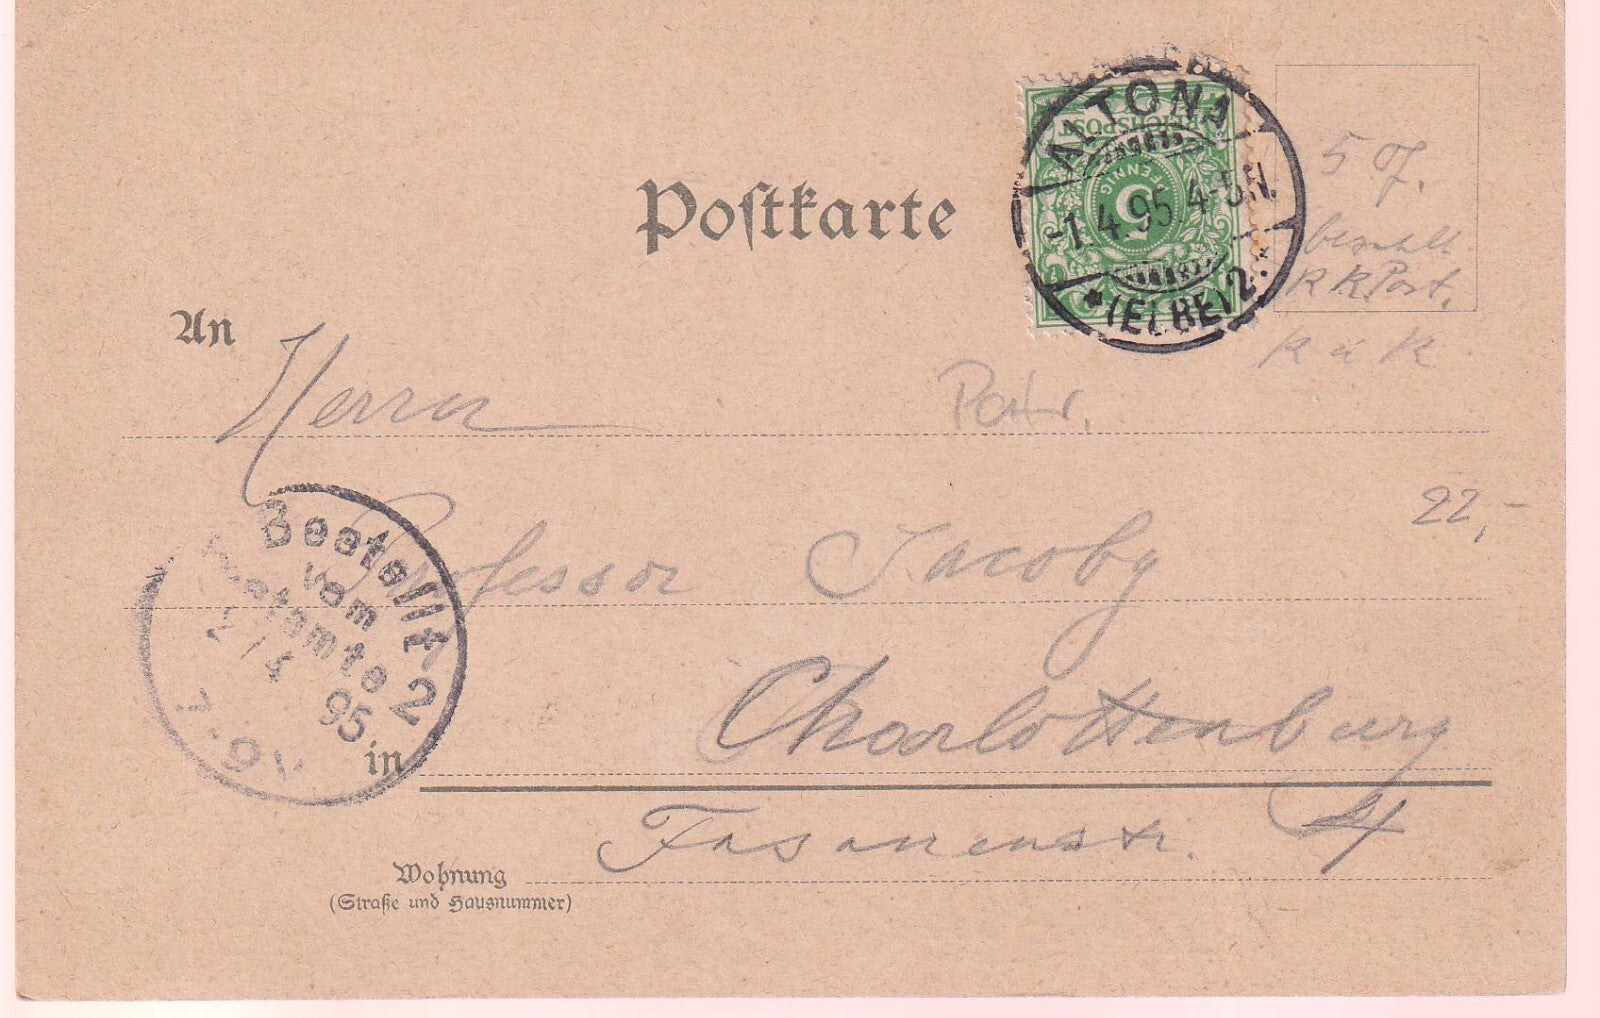 Postkarte
ALTONA
REICHSPOST
5
PFENNIG
-1.4.95.4-5N.
* (ELBE) 2. *
5 Pf.
bezahlt
K K Post.
K u K
An
Herrn
22,-
Professor Jacoby
Bestellt
vom
Postamte 2
2/4 95.
in
Charlottenburg
4
Fasanenstr.
Wohnung
(Straße und Hausnummer)